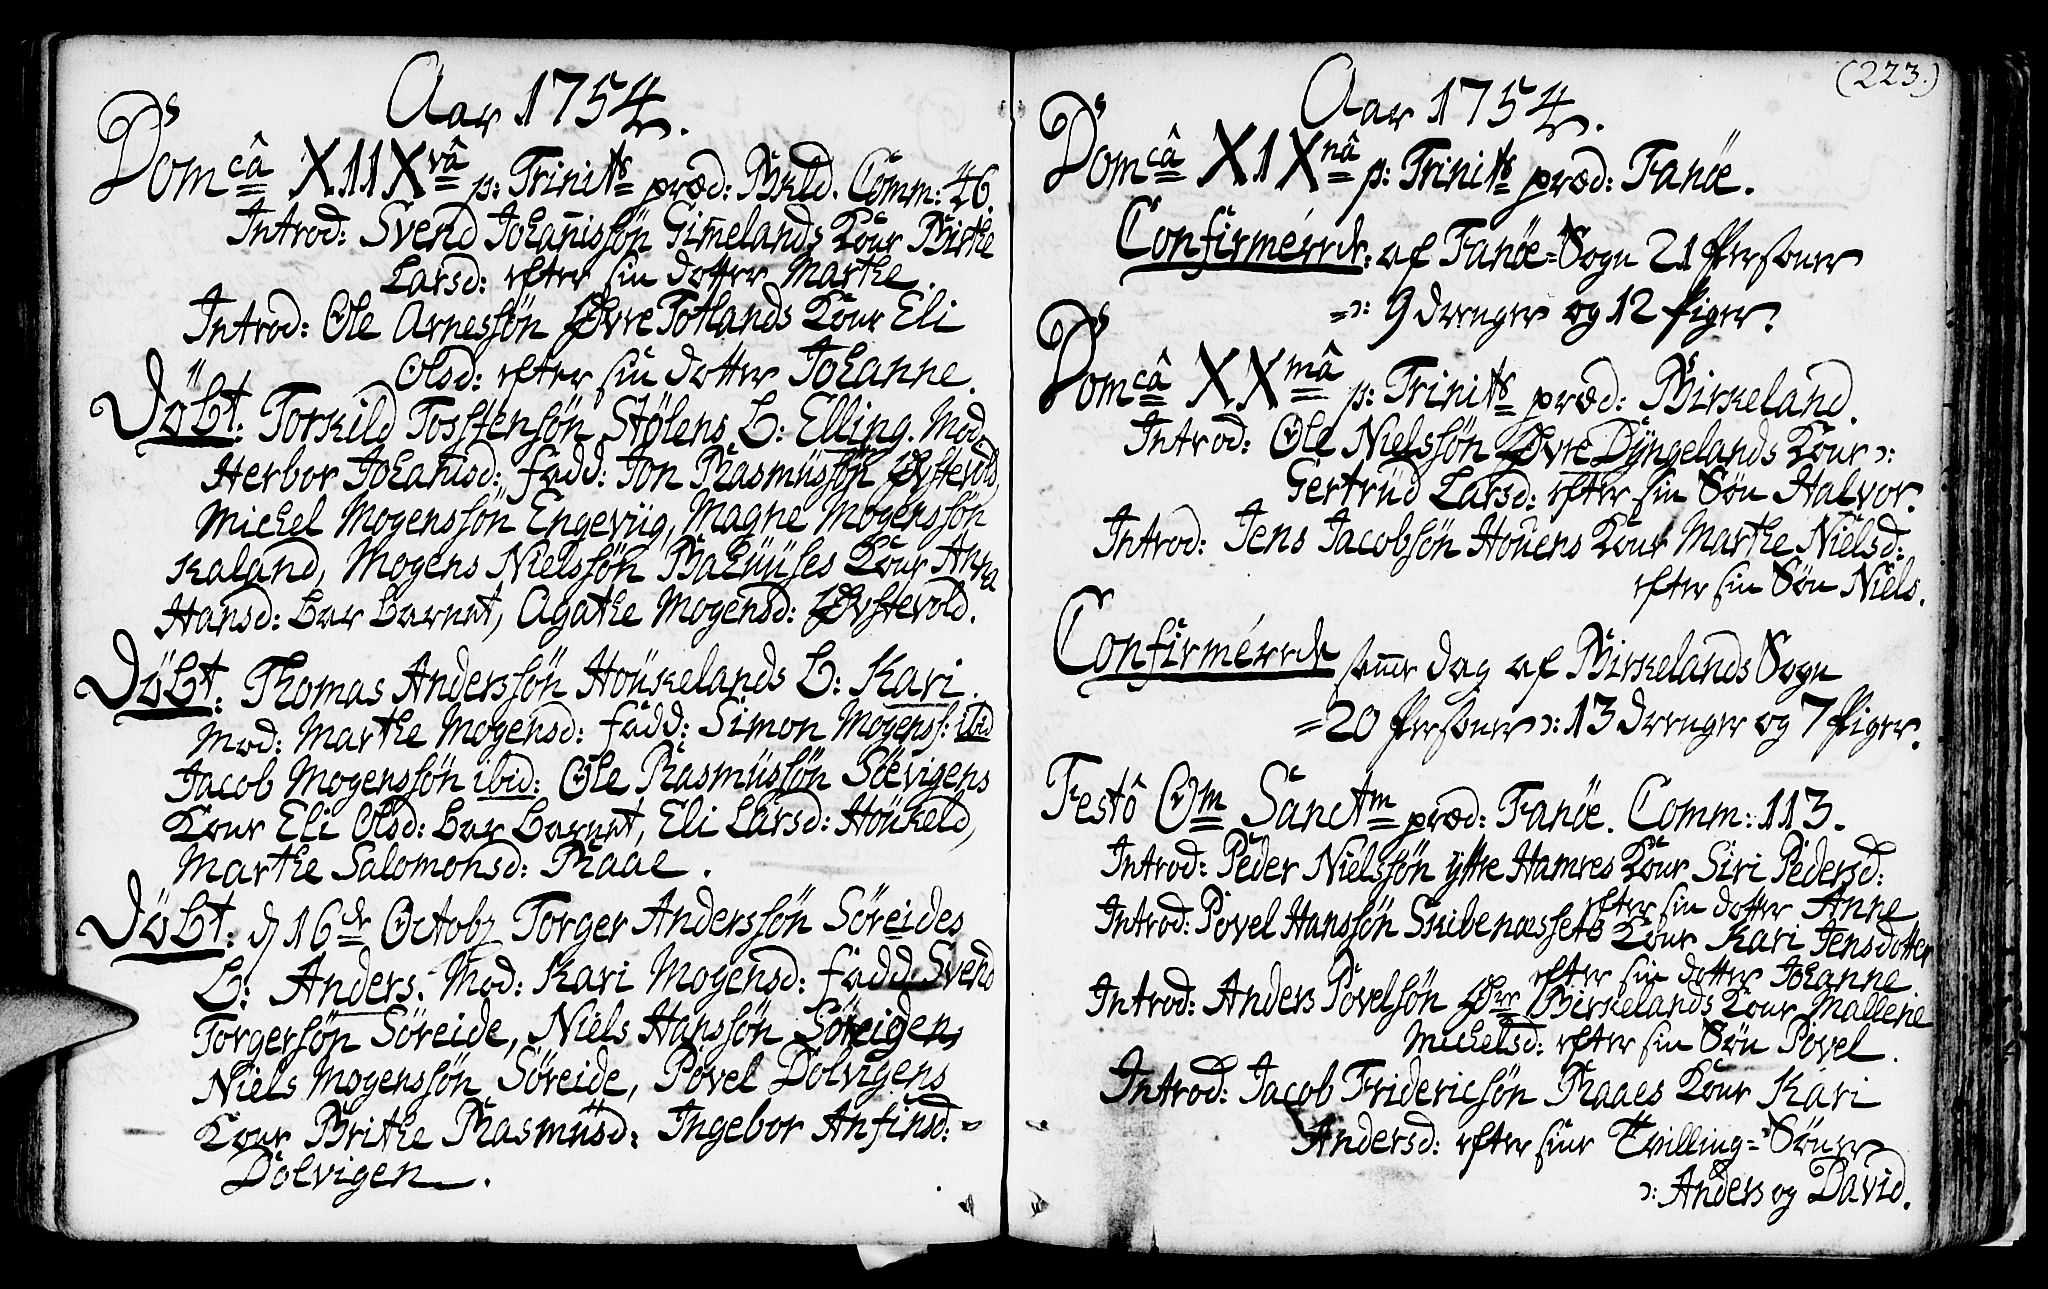 Aar 1754.
Domcâ XIIXvâ p: Trinits præd: Birkld. Comm: 46.
Introd: Svend Johanissön Gimelands Kone Birthe
Larsd: efter sin dotter Marthe.
Introd: Ole Arnessön Øvre Totlands Kone Eli
Olsd: efter sin dotter Johanne.
Döbt: Torkild Tosstensön Stölens b: Elling. Mod:
Herbor Johanisd: fadd: Jon Rasmüssön Øvstevold,
Michel Mogenssön Engeviig, Magne Mogenssön
Kaland, Mogens Nielssön Kone Anna
Hansd: bar barnet, Agathe Mogensd: Øvstevold.
Döbt: Thomas Anderssön Houkelands b: Kari.
Mod: Marthe Mogensd: fadd: Simon Mogenss: ibid
Jacob Mogenssön ibid: Ole Rasmüssön Søvigens
Kone Eli Olsd: bar barnet, Eli Larsd: Houkeld,
Marthe Salomonsd: Raae.
Döbt: d 16de Octobr Torger Anderssön Söreides
b: Anders. Mod: Kari Mogensd: fadd. Svend
Torgersön Söreide, Niels Hanssön Söreigen,
Niels Mogenssön Söreide, Povel Dolvigens
Kone Brithe Rasmüsd: Ingebor Anfinsd:
Dolvigen.
(223.)
Aar 1754.
Domcâ XIXnâ p: Trinits præd: Fanöe.
Confirmérede: af Fanöe-Sogn 21 Personer
=ɔ: 9 drenger og 12 Piger.
Domcâ XXmâ p: Trinits præd: Birkeland.
Introd: Ole Nielssön Øvre Dyngelands Kone ɔ:
Gertrüd Larsd: efter sin Sön Halvor.
Introd: Jens Jacobsön Houens Kone Marthe Nielsd:
efter sin Sön Niels.
Confirmérede samme dag af Birkelands Sogn
=20 Personer ɔ: 13 drenger og 7 Piger.
Festô Om Sanctm præd: Fanöe. Comm: 113.
Introd: Peder Nielssön ytte Hamres Kone Siri Pedersd:
efter sin dotter Anne
Introd: Povel Hanssön Skibenæssets Kone Kari Jensdotter
efter sin dotter Johanne
Introd: Anders Povelsön Øvre Birkelands Kone Mallene
Michelsd: efter sin Sön Povel.
Introd: Jacob Fridericsön Raaes Kone Kari
Andersd: efter sine Tvilling-Söner
ɔ: Anders og David.